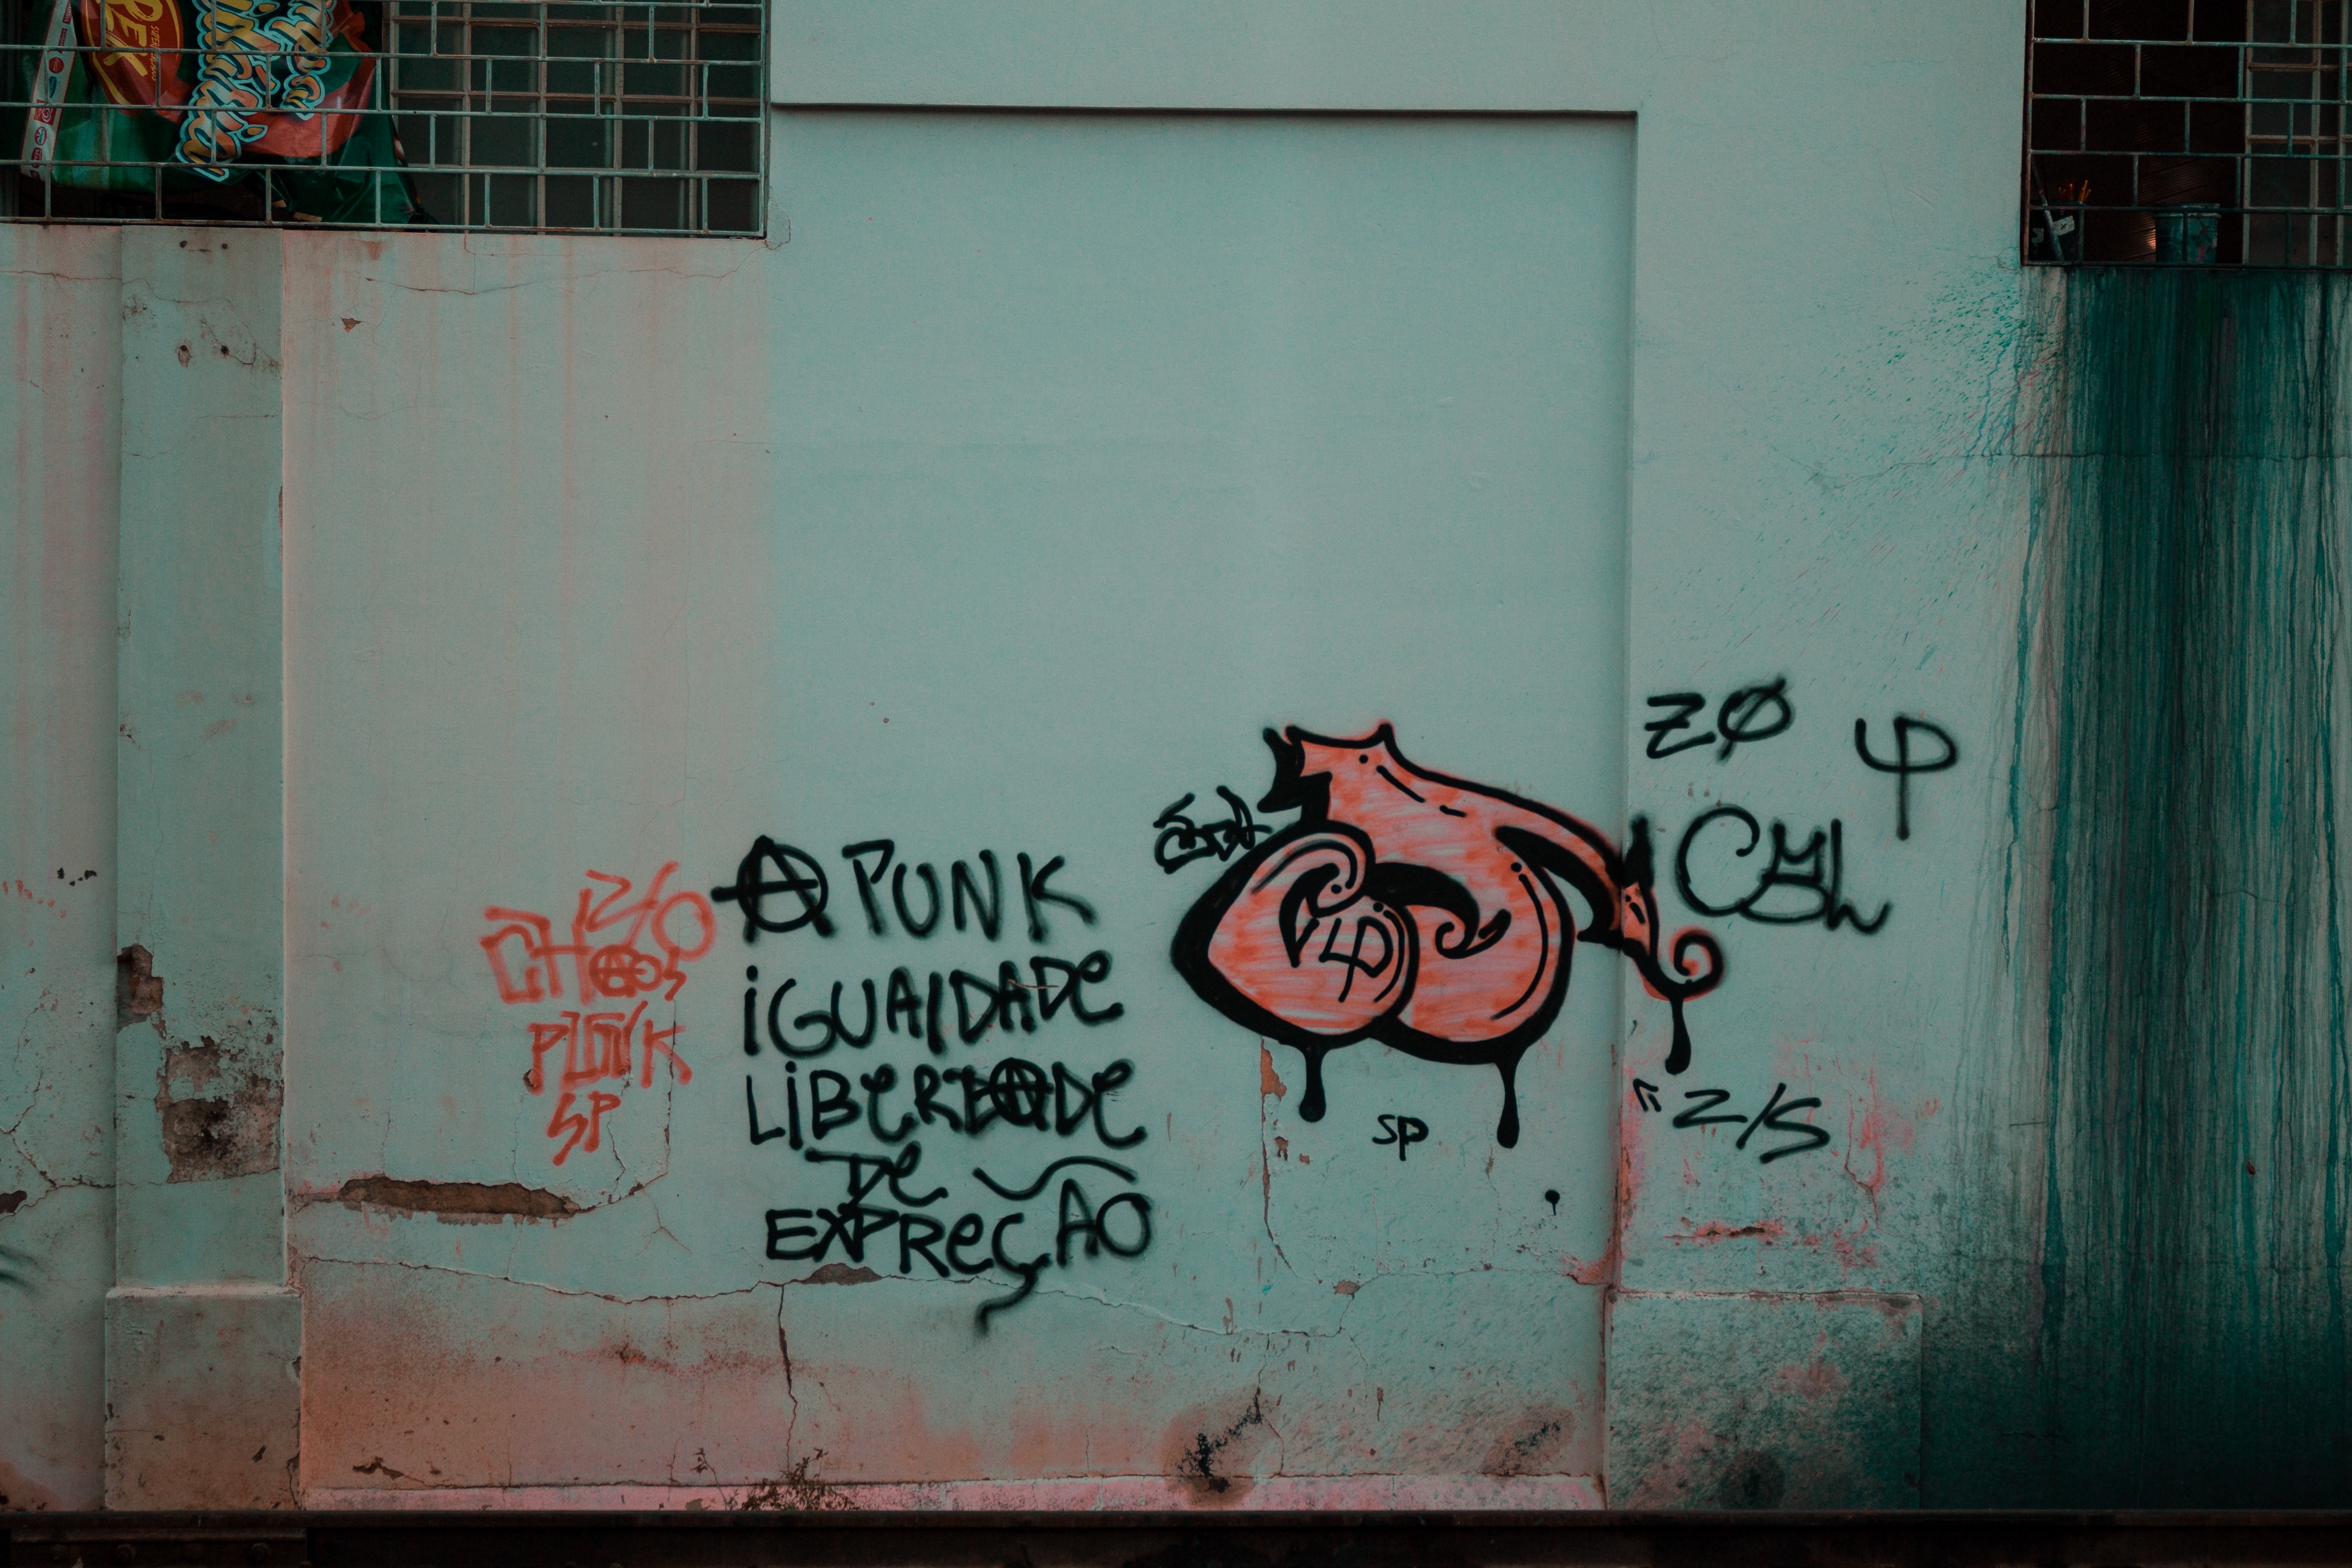 REX
Z/O
CHAOS
PUNK
SP
A PUNK
iGUAlDADe
LiBeRDADe
De
EXPReÇÃO
SP
ZØ
Z/S